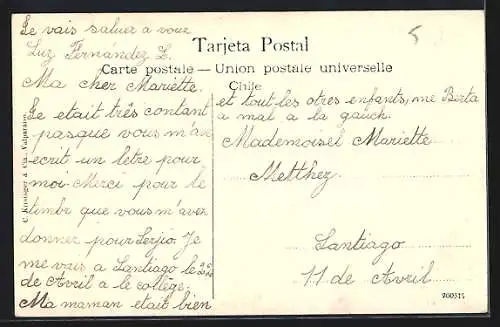 Le vais saluer a vouz
Luz Fernández L.
5
Tarjeta Postal
Carte postale — Union postale universelle
Chile
Ma cher Mariette.
Le etait três contant
pasque vous m'av
ecrit un letre pour
moi Merci pour le
timbe que vous m'avez
donner pour Serjio. Je
me vais a Santiago le 22
de Avril a le collège.
Ma maman etait bien
et tout les otres enfants, me Berta
a mal a la gauch.
Mademoisel Mariette
Metthez.
Santiago
11 de Avril
C. Kirsinger & Cia., Valparaiso.